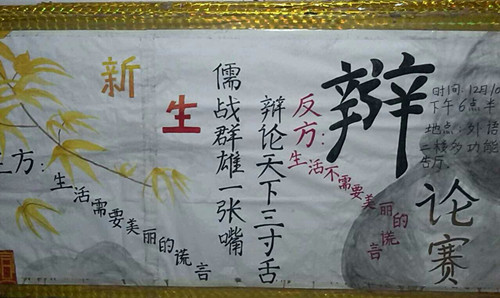 新生
辩论赛
方:
生活需要美丽的谎言
儒战群雄一张嘴
辩论天下三寸舌
反方:
生活不需要美丽的谎言
时间:12月10
下午6点半
地点:外语
二楼多功能
告厅。